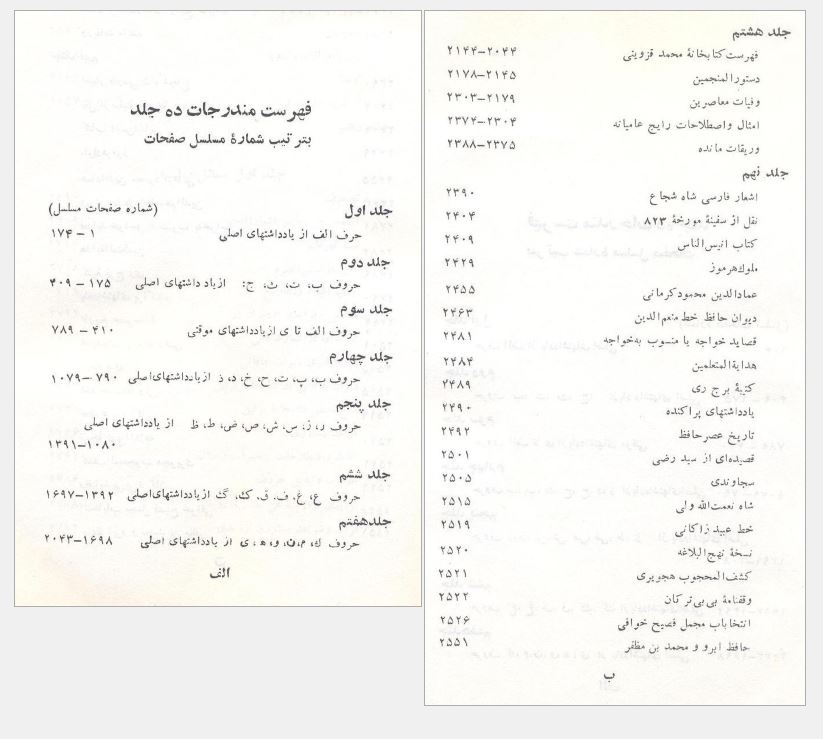 فهرست مندرجات ده جلد
بترتیب شمارهٔ مسلسل صفحات
جلد اول (شماره صفحات مسلسل)
حرف الف از یادداشتهای اصلی ۱ – ۱۷۴
جلد دوم
حروف ب، ت، ث، ج: ازیادداشتهای اصلی ۱۷۵ – ۴۰۹
جلد سوم
حروف الف تا ی ازیادداشتهای موقتی ۴۱۰ – ۷۸۹
جلد چهارم
حروف ب، پ، ت، ح، خ، د، ذ ازیادداشتهای‌اصلی ۷۹۰ –۱۰۷۹
جلد پنجم
حروف ر، ز، س، ش، ص، ض، ط، ظ از یادداشتهای اصلی
۱۰۸۰–۱۳۹۱
جلد ششم
حروف ع، غ، ف، ق، ک، گ ازیادداشتهای‌اصلی ۱۳۹۲–۱۶۹۷
جلدهفتم
حروف ل، م،ن، و، ه، ی از یادداشتهای اصلی ۱۶۹۸–۲۰۴۳
الف
جلد هشتم
فهرست‌کتابخانهٔ محمد قزوینی ۲۰۴۴–۲۱۴۴
دستورالمنجمین ۲۱۴۵–۲۱۷۸
وفیات معاصرین ۲۱۷۹–۲۳۰۳
امثال واصطلاحات رایج عامیانه ۲۳۰۴–۲۳۷۴
وریقات مانده ۲۳۷۵–۲۳۸۸
جلد نهم
اشعار فارسی شاه شجاع ۲۳۹۰
نقل از سفینهٔ مورخهٔ ۸۲۳ ۲۴۰۴
کتاب انیس‌الناس ۲۴۰۹
ملوک‌هرموز ۲۴۲۹
عمادالدین محمودکرمانی ۲۴۵۵
دیوان حافظ خط‌منعم‌الدین ۲۴۶۳
قصاید خواجه یا منسوب به‌خواجه ۲۴۸۱
هدایةالمتعلمین ۲۴۸۴
کتیبهٔ برج ری ۲۴۸۹
یادداشتهای پراکنده ۲۴۹۰
تاریخ عصرحافظ ۲۴۹۲
قصیده‌ای از سید رضی ۲۵۰۱
سجاوندی ۲۵۰۵
شاه نعمت‌الله ولی ۲۵۱۵
خط عبید زاکانی ۲۵۱۹
نسخهٔ نهج‌البلاغه ۲۵۲۰
کشف‌المحجوب هجویری ۲۵۲۱
وقفنامهٔ بی‌بی‌ترکان ۲۵۲۲
انتخابات مجمل فصیح خوافی ۲۵۲۶
حافظ ابرو و محمد بن مظفر ۲۵۵۱
ب